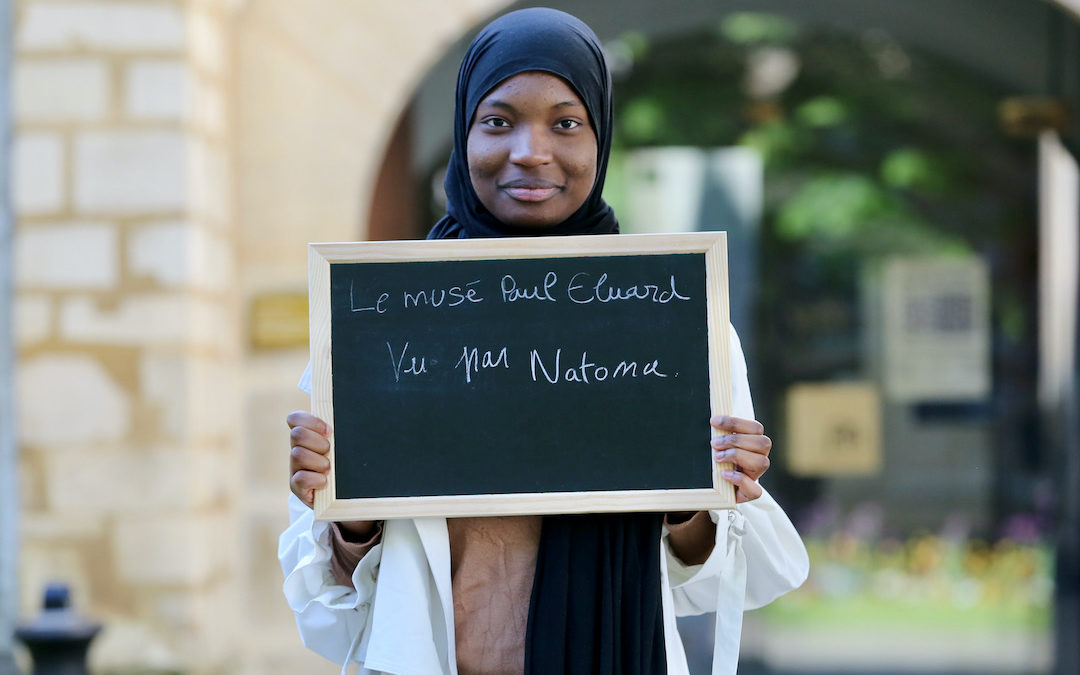 Le musé Paul Eluard
Vu par Natoma.